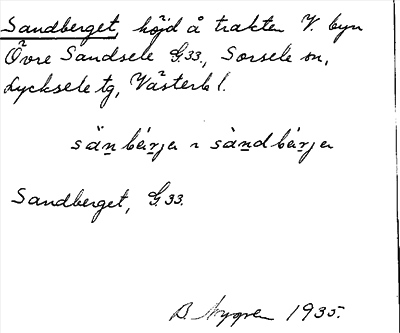 Sandberget, höjd å trakten V. byn
Övre Sandsele G.33., Sorsele sn,
Lycksele tg, Västerb l.
sän̲bèrja ~ sàn̲dbèrja
Sandberget, G.33.
B. Nygren 1935.